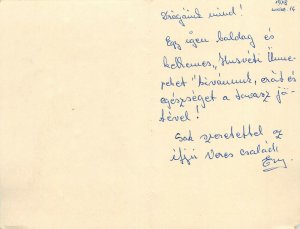 1978
Drágáink mind!
Egy igen boldog és
kellemes, "Húsvéti Ünne-
peket" kívánunk, erőt és
egészséget a tavasz jö-
tével!
Sok szeretettel az
ifjú Veres család